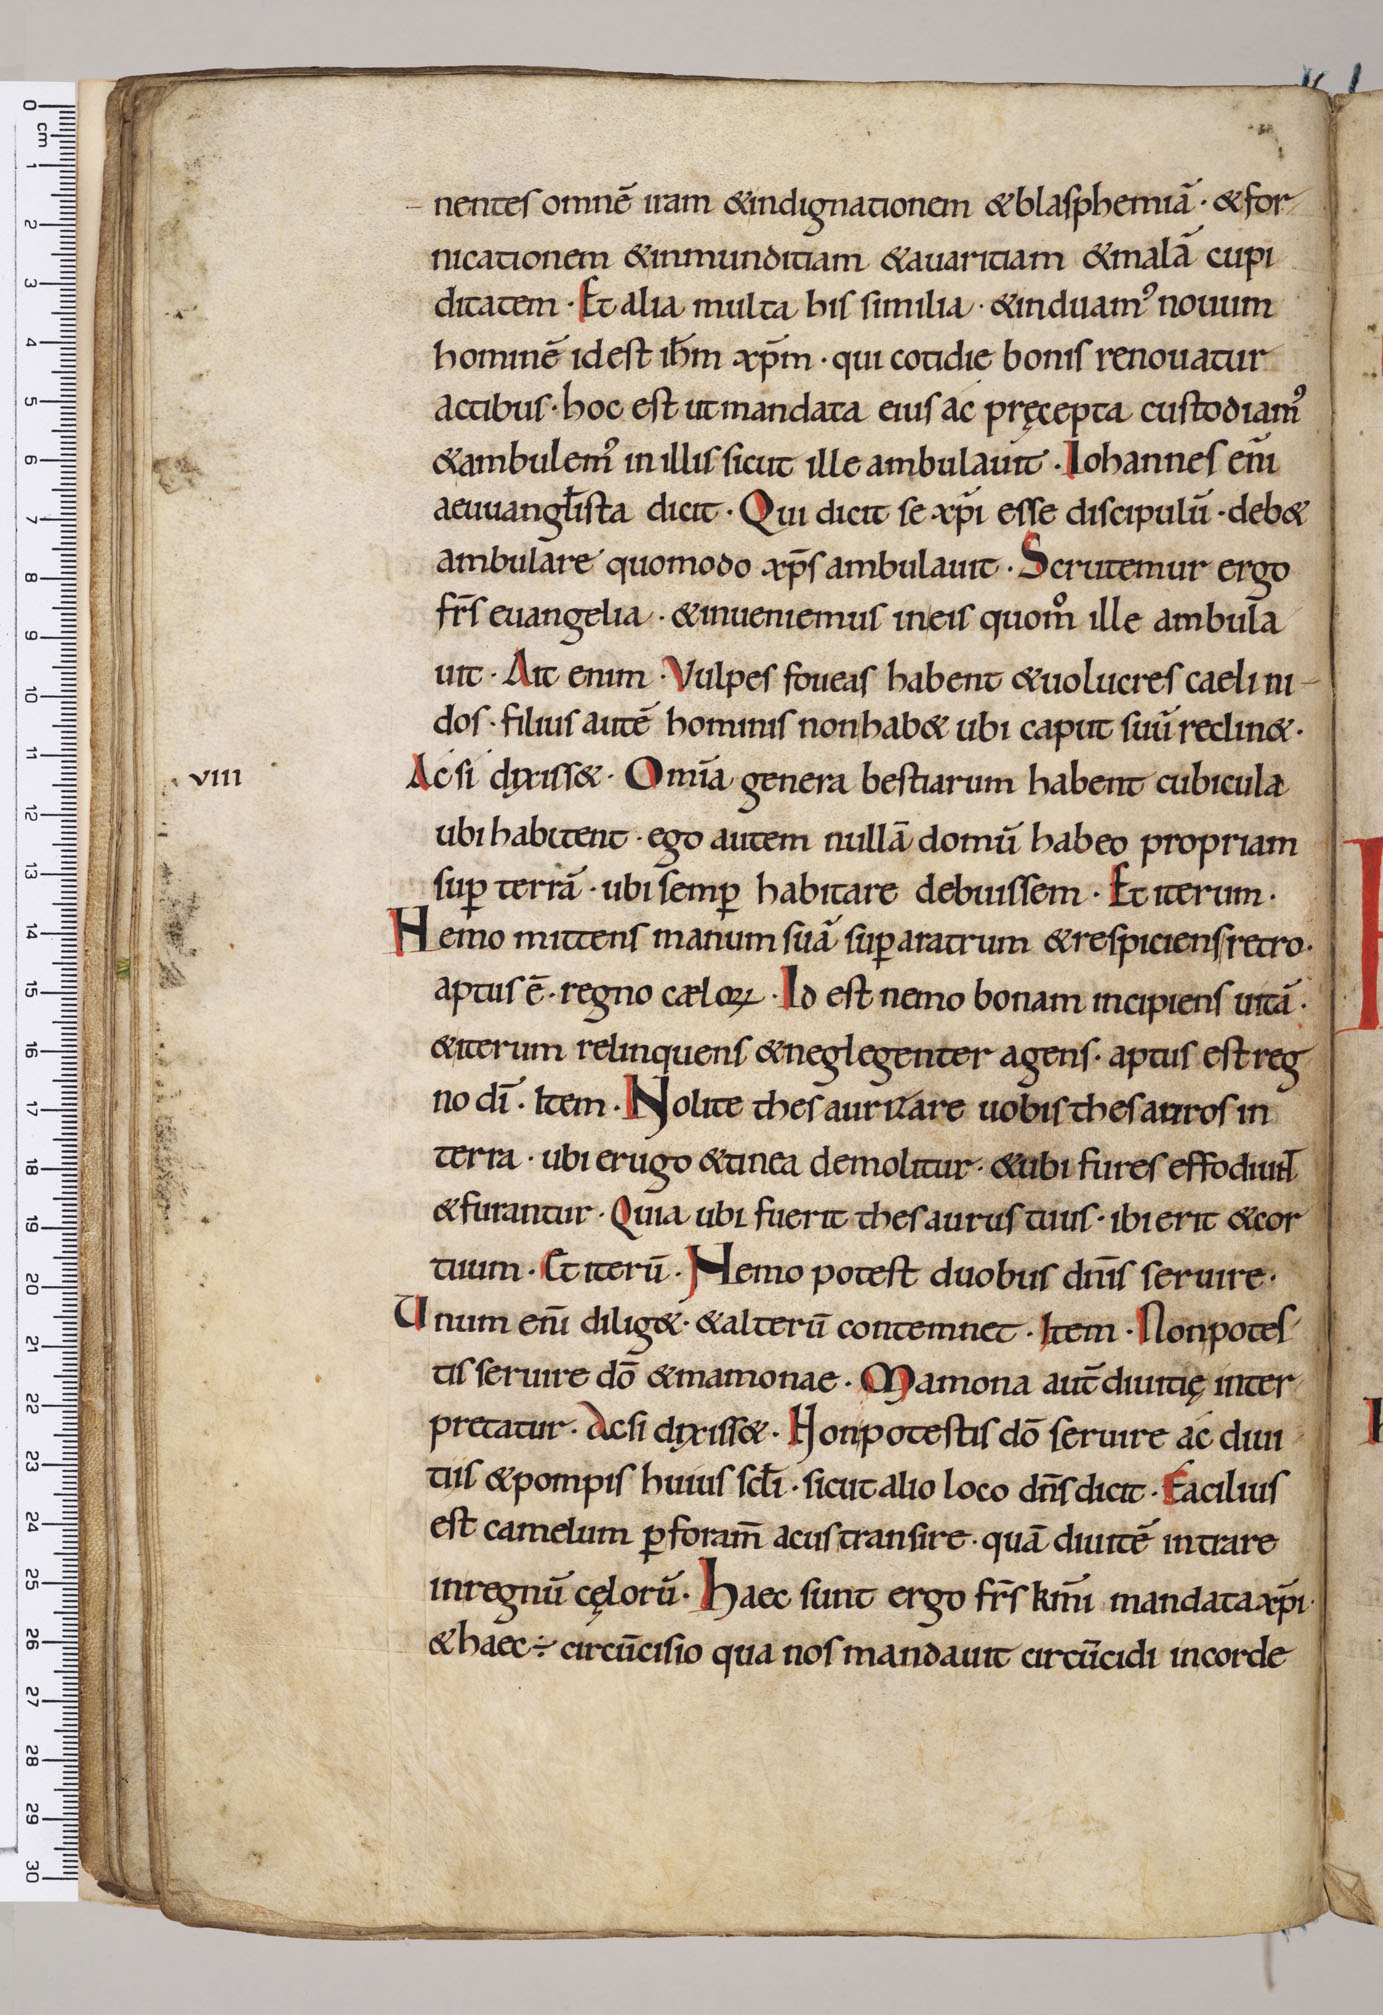 nentes omnē iram &indignationem &blasphemiā · &for
nicationem &inmunditiam &auaritiam &malā cupi
ditatem · Et alia multa his similia · &induamꝰ nouum
hominē id est ih̄m xp̄m · qui cotidie bonis renouatur
actibus · hoc est ut mandata eius ac pręcepta custodiamꝰ
&ambulemꝰ in illis sicut ille ambulauit · Iohannes eni̅
aeuuangłista dicit · Qui dicit se xp̄i esse discipulū · deb&
ambulare quomodo xp̄s ambulauit · Scrutemur ergo
fr̄s euangelia · &inueniemus in eis quom̊ ille ambula
uit · Ait enim · Vulpes foueas habent &uolucres caeli ni
dos · filius autē hominis non hab& ubi caput suū reclin& ·
viii
Ac si dixiss& · Omīa genera bestiarum habent cubicula
ubi habitent · ego autem nullā domū habeo propriam
suꝑ terrā · ubi semꝑ habitare debuissem · Et iterum ·
Nemo mittens manum suā suꝑ aratrum &respiciens retro ·
aptus ē · regno cæloꝝ · Id est nemo bonam incipiens uitā ·
&iterum relinquens &neglegenter agens · aptus est reg
no dī · Item · Nolite thesaurizare uobis thesauros in
terra · ubi erugo &tinea demolitur · &ubi fures effodiuнt̄
&furantur · Quia ubi fuerit thesaurus tuus · ibi erit &cor
tuum · Et iterū · Nemo potest duobus dn̄is seruire ·
Vnum eni̅ dilig& · &alterū contemnet · Item · Non potes
tis seruire dō &mamonae · Mamona aut̄ diuitię inter
pretatur · Ac si dixiss& · Non potestis dō seruire ac diui
tiis &pompis huius scłi · sicut alio loco dn̄s dicit · Facilius
est camelum ꝑ foram̄ acus transire · quā diuitē intrare
in regnū cęlorū · Haec sunt ergo fr̄s km̄i mandata xp̄i ·
&haec ÷ circūcisio qua nos mandauit circūcidi in corde